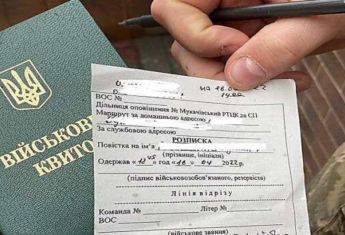 ВІЙСЬКОВ
КВИТО
на 16.04
ВОС №
Дільниця оповіщення № Мукачівський РТЦК та СП
Маршрут за домашньою адресою
За службовою адресою
РОЗПИСКА
Повістка на ім'я
(прізвище, ініціали)
Одержав «11 45» год «16» 04 2022 р.
(підпис військовозобов'язаного, резервіста)
Лінія відрізу
Команда № Літер №
ВОС №